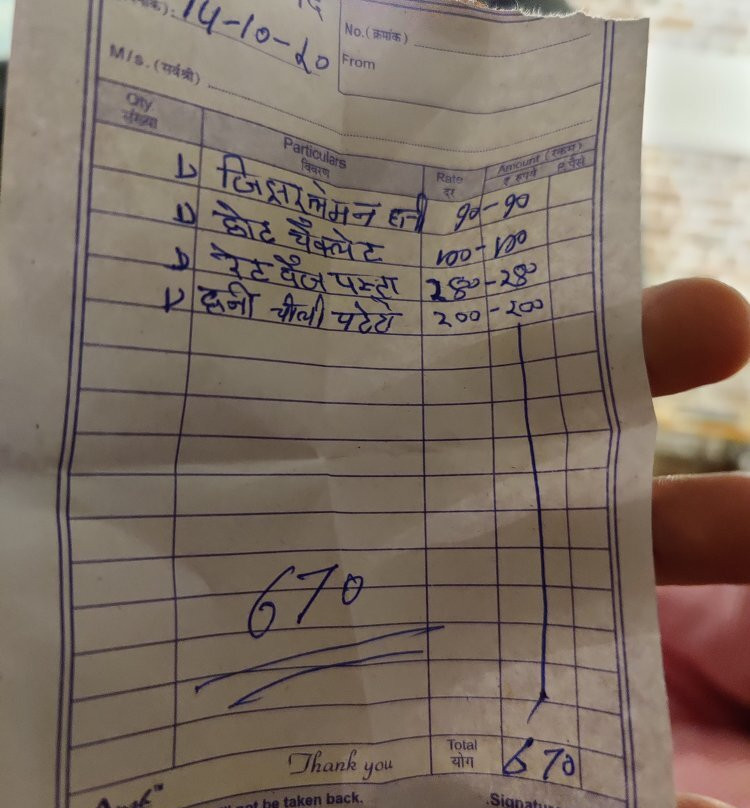 14-10-20
No. (क्रमांक)
From
M/s. (सर्वश्री)
Qty. संख्या Particulars विवरण Rate दर Amount (रकम) रु. रुपये P. पैसे
1) जिंजर लेमन हनी 90-90
1) होट चॅक्लेट 100-100
1) रेट वैज पस्टा 280-280
1) हनी चीली पटेटो 200-200
670
Thank you Total योग 670
not be taken back. Signatu